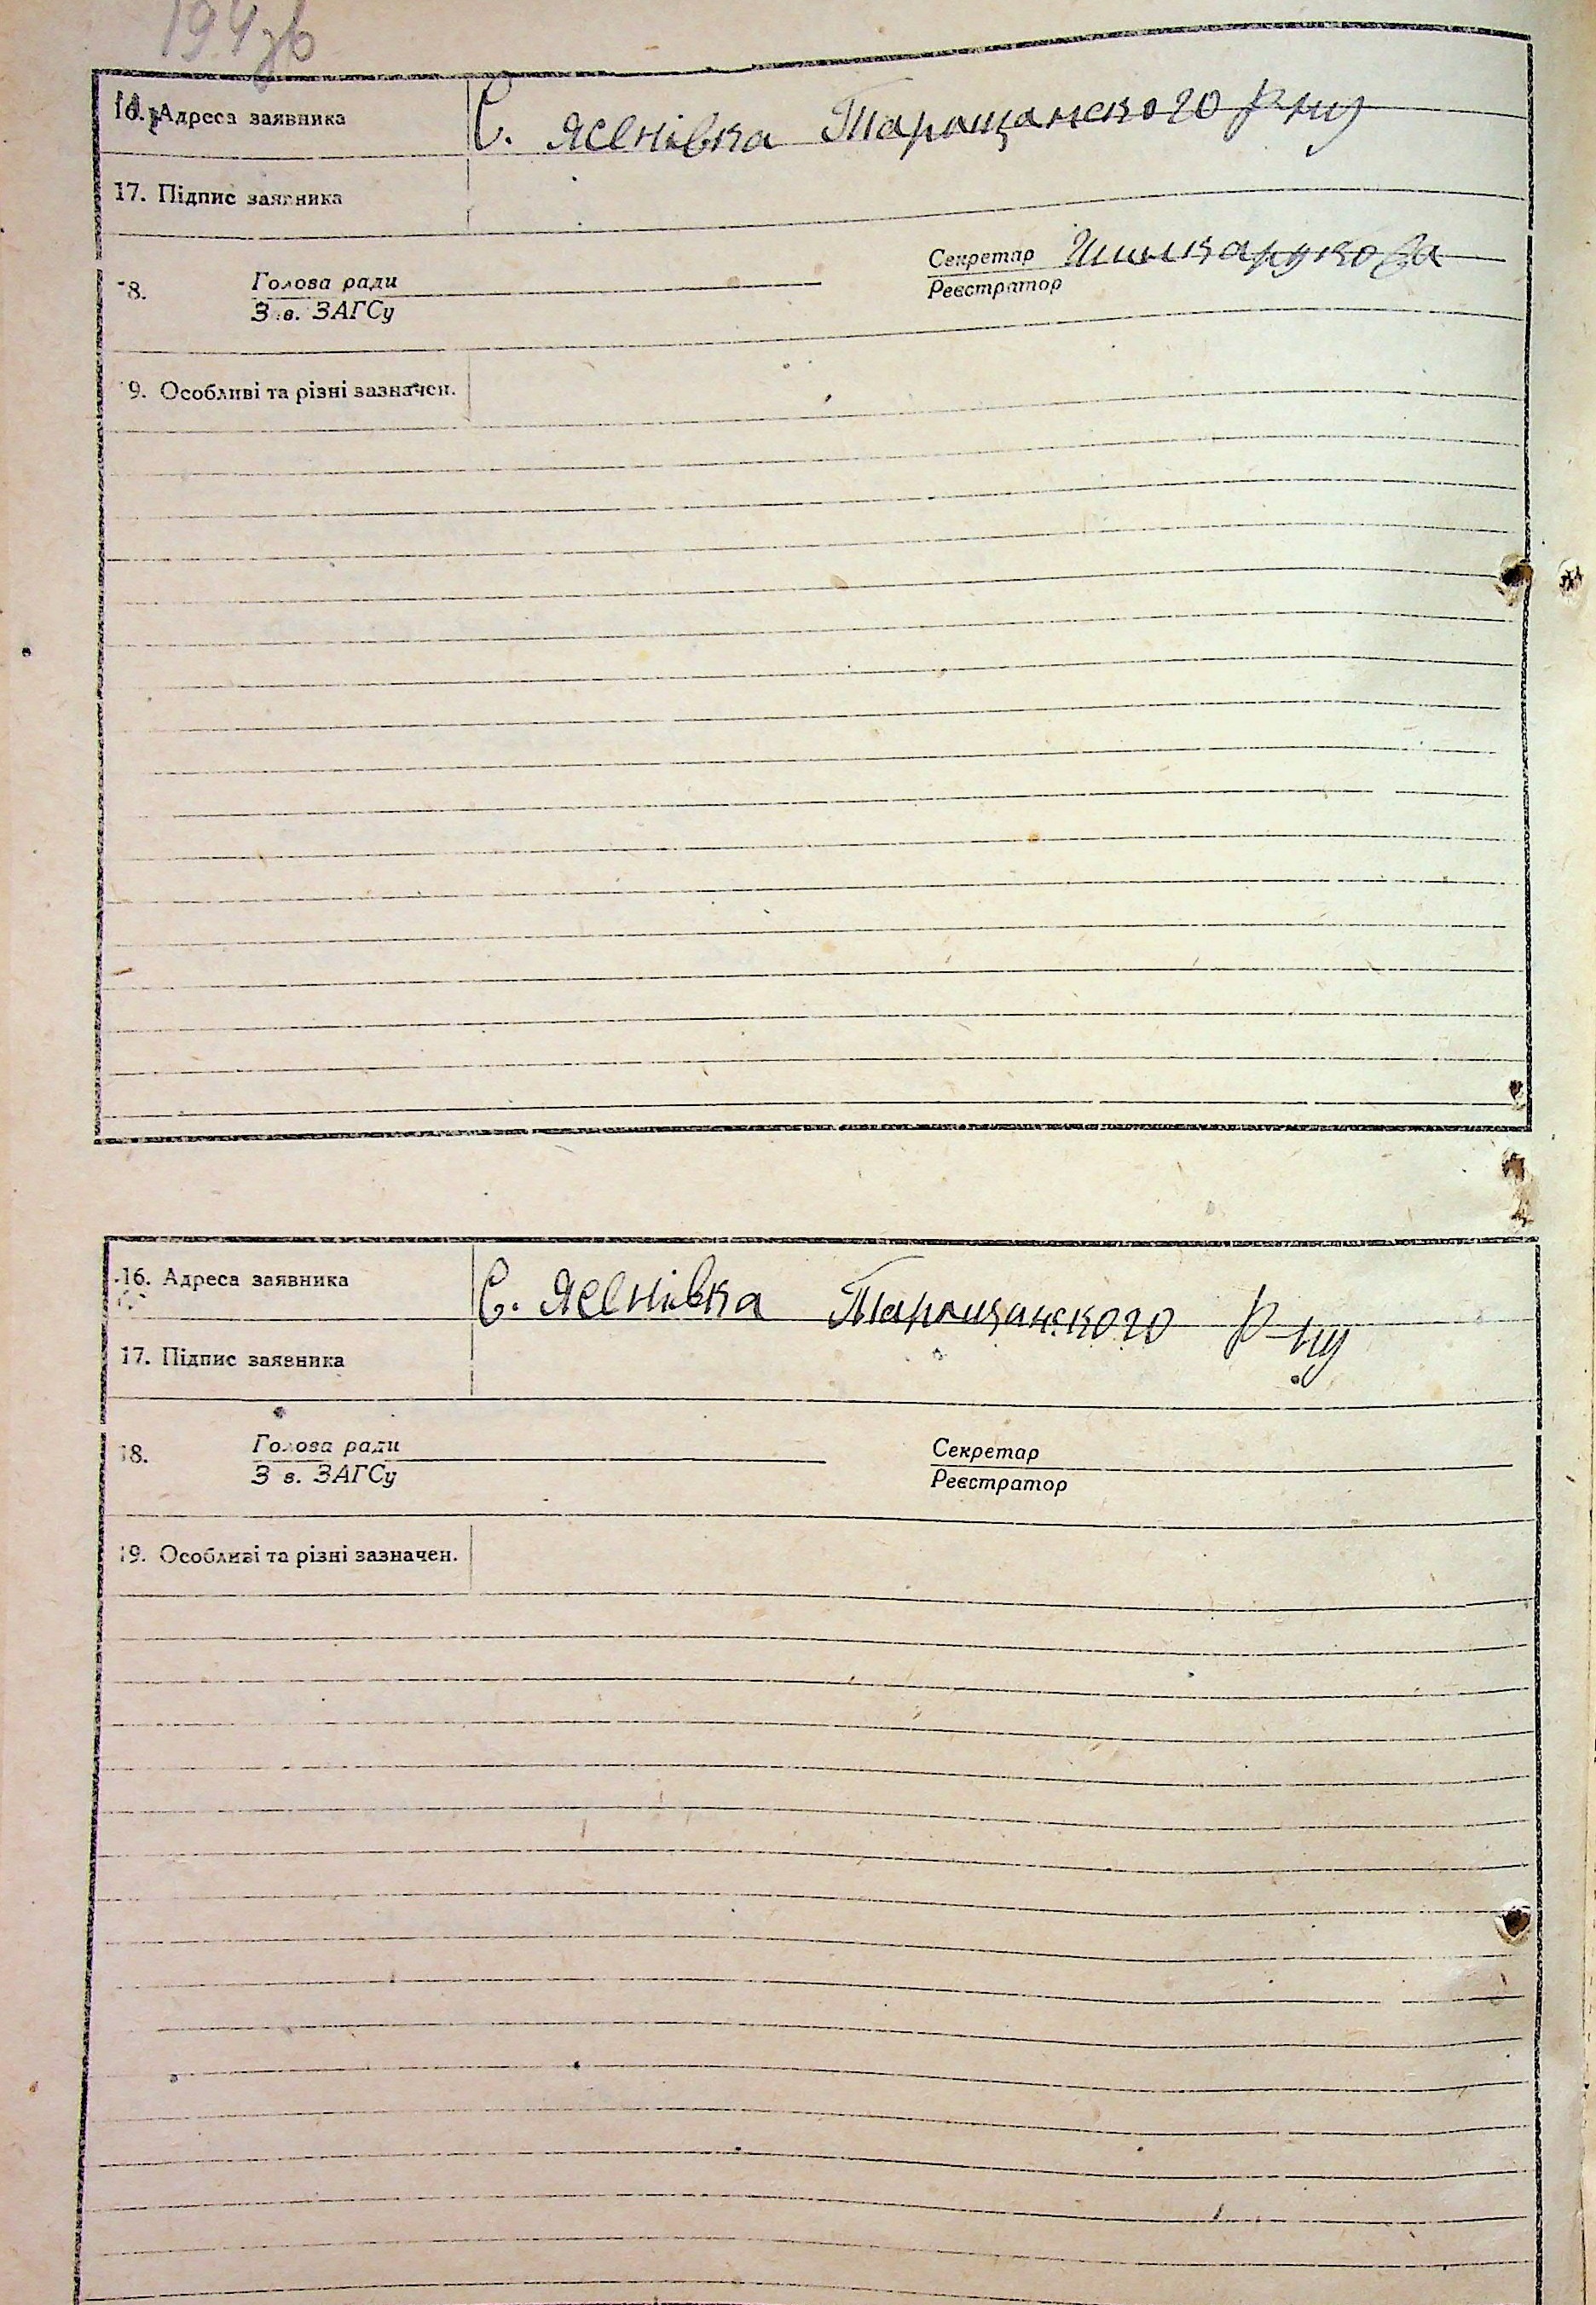 194зв
16. Адреса заявника С. Ясенівка Таращанського р-ну
17. Підпис заявника
18. Голова ради Секретар Шинкарукова
Зав. ЗАГСу Реєстратор
19. Особливі та різні зазначен.
16. Адреса заявника С. Ясенівка Таращанського р-ну
17. Підпис заявника
18. Голова ради Секретар
Зав. ЗАГСу Реєстратор
19. Особливі та різні зазначен.